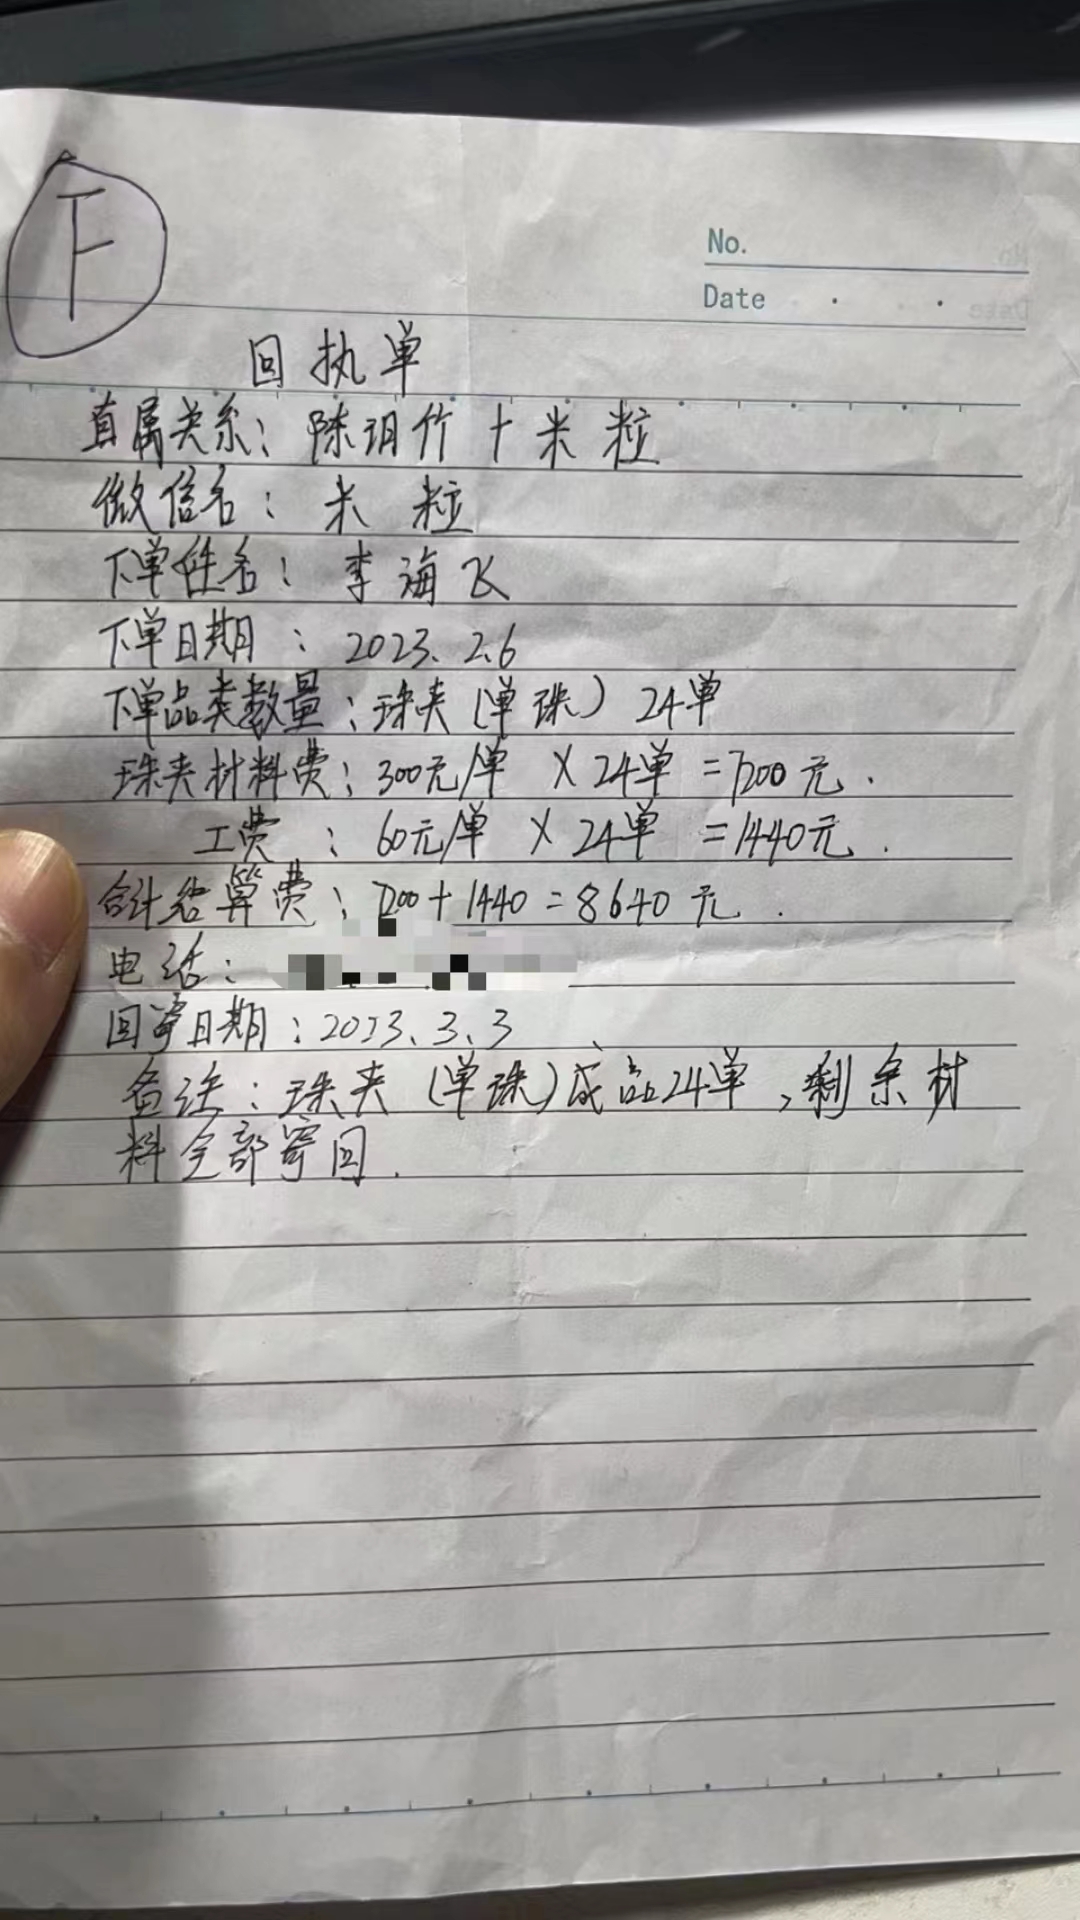 F
No.
Date
回执单
直属关系：陈玥竹+米粒
微信名：米粒
下单姓名：李海飞
下单日期：2023.2.6
下单品类数量：珠夹(单珠) 24单
珠夹材料费：300元/单 X 24单 =7200元.
工费：60元/单 X 24单 =1440元.
合计结算费：7200+1440=8640元.
电话：
回寄日期：2023.3.3
备注：珠夹(单珠)成品24单，剩余材
料全部寄回.